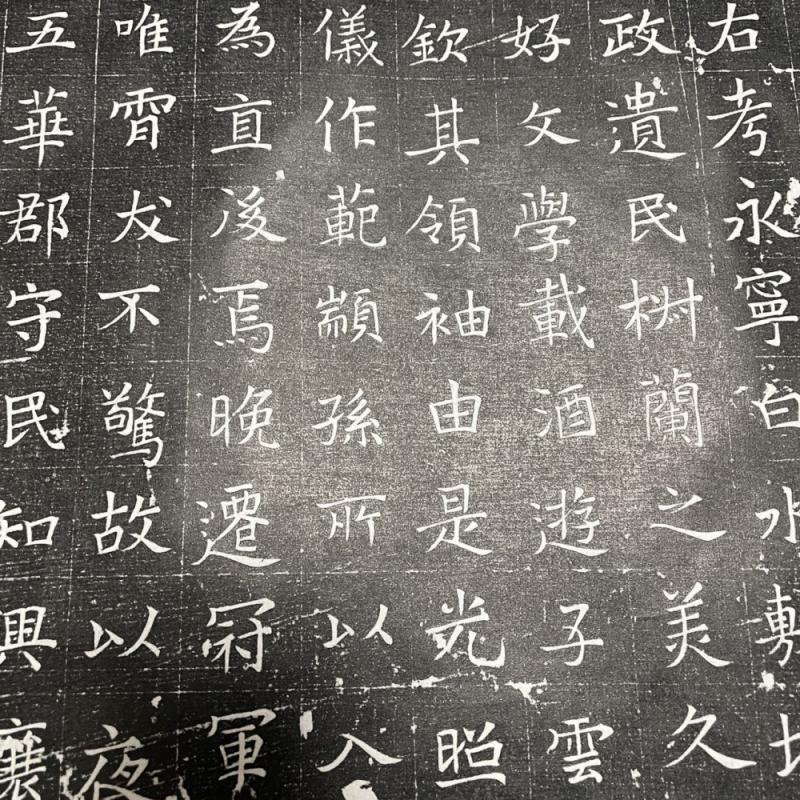 右考永寧白水
政遺民樹蘭之美久
好文學載酒遊子雲
欽其領袖由是光照
儀作範顓孫所以入
為直後焉晚遷冠軍
唯宵犬不驚故以夜
五華郡守民知興